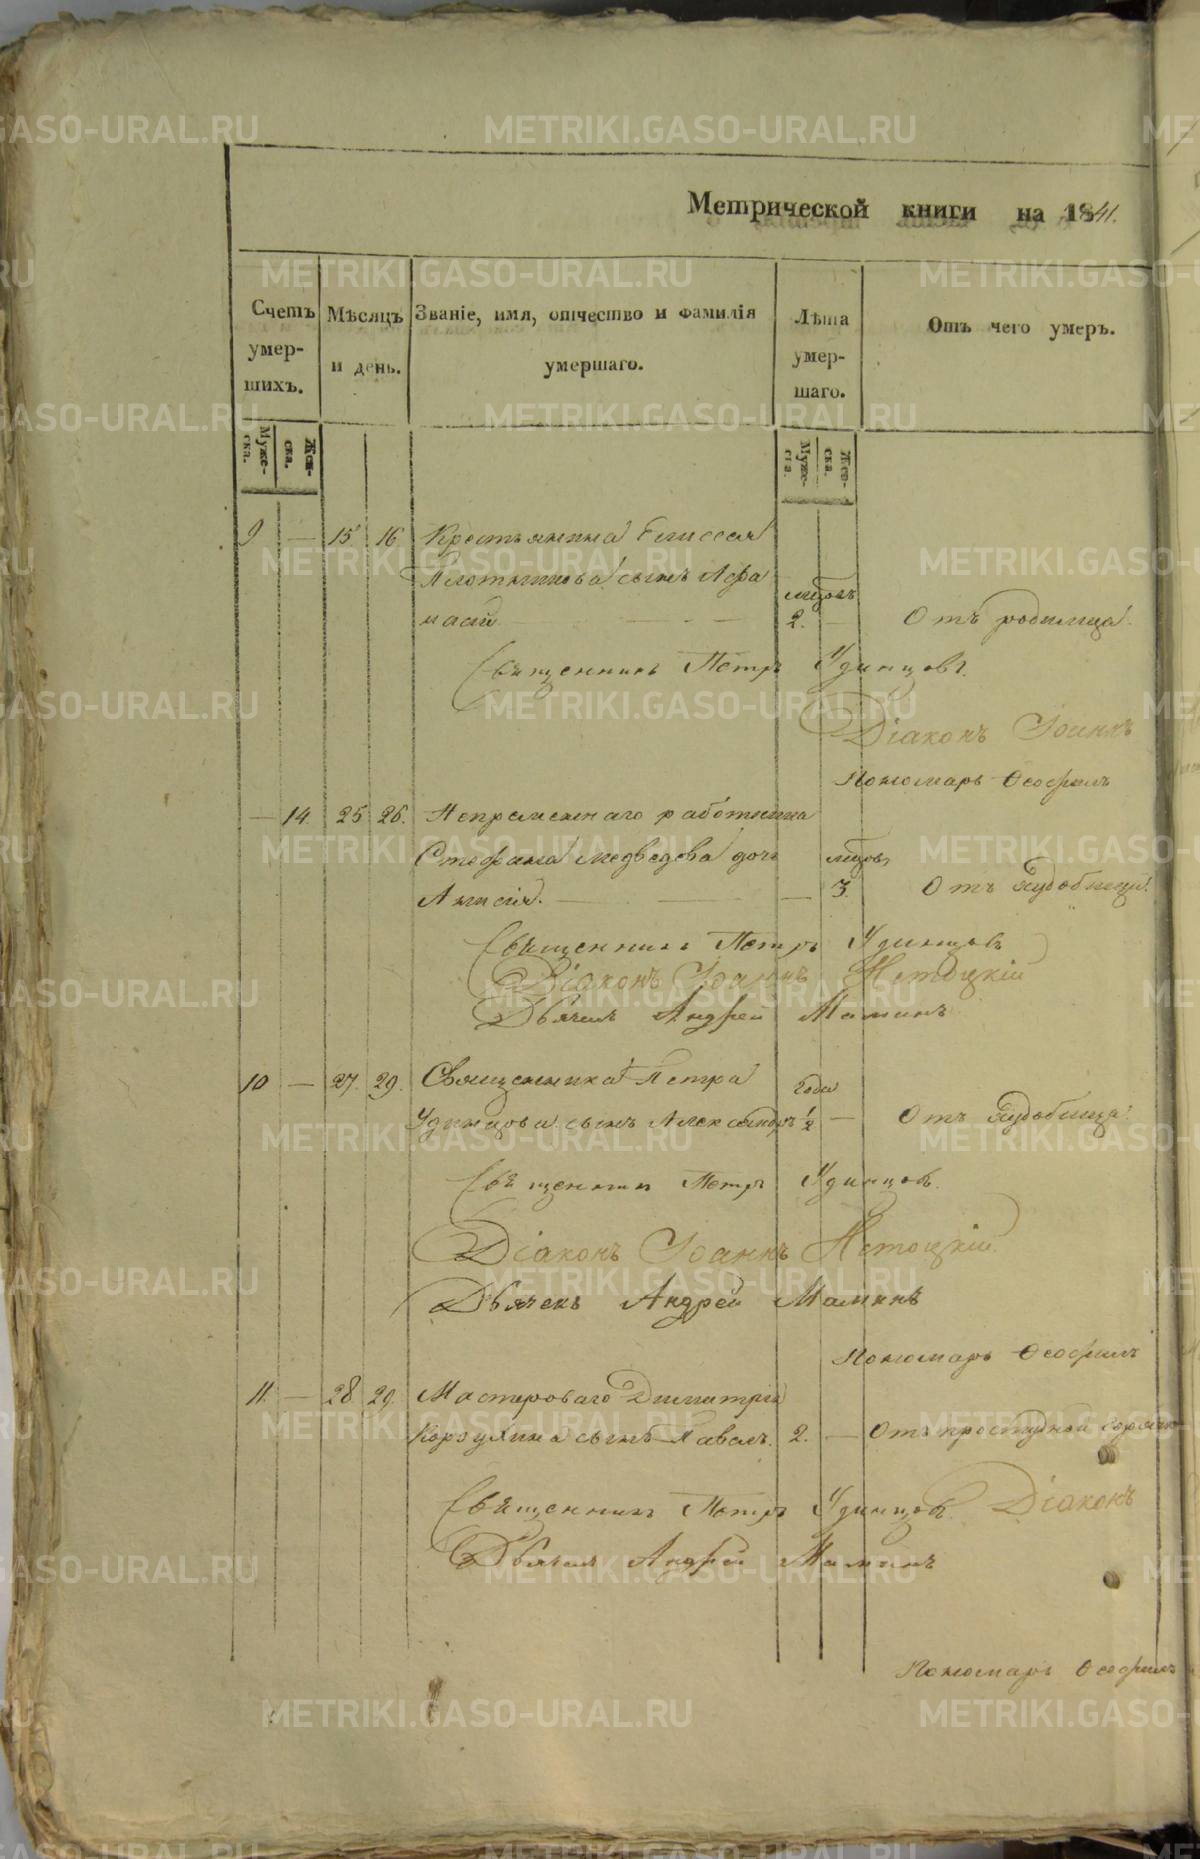 Метрической книги на 1841.
Счетъ умер-шихъ.
Мѣсяцъ и день.
Званіе, имя, отчество и фамилія умершаго.
Лѣта умер-шаго.
Отъ чего умеръ.
Муже-ска.
Жен-ска.
Муже-ска.
Жен-ска.
9 — 15 16 Крестьянина Елисея
Плотникова сынъ Афа
насій — — — 2. — Отъ родимца.
Священникъ Петръ Удинцовъ.
Діаконъ Іоаннъ
Пономарь Ѳеофилъ
— 14 25 26. Непременнаго работника
Стефана Медведева дочь
Анисія. — — — 3. Отъ
Священникъ Петръ Удинцовъ
Діаконъ Іоаннъ
Дьячекъ Андрей Маминъ
10 — 27. 29. Священника Петра года
Удинцова сынъ Александръ 1/2 — Отъ
Священникъ Петръ Удинцовъ.
Діаконъ Іоаннъ
Дьячекъ Андрей Маминъ
Пономарь Ѳеофилъ
11. — 28 29. Мастероваго Димитрія
сынъ Павелъ. 2. — Отъ простудной
Священникъ Петръ Удинцовъ. Діаконъ
Дьячекъ Андрей Маминъ
Пономарь Ѳеофилъ
METRIKI.GASO-URAL.RU